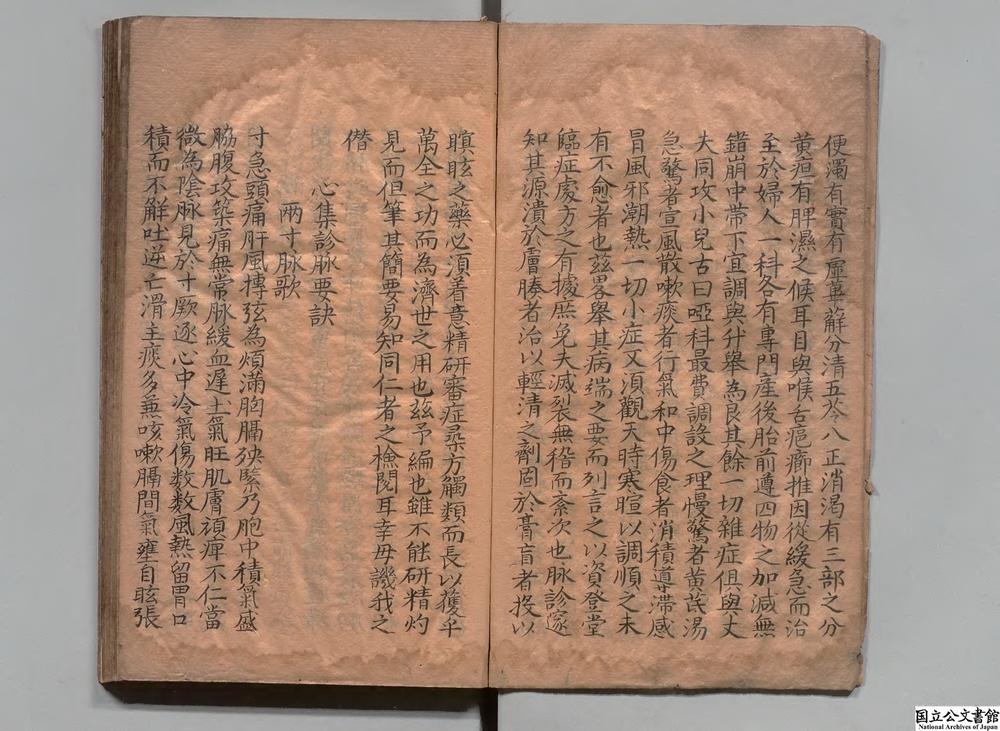 便濁有實有虛萆薢分清五苓八正消渴有三部之分
黃疸有脾濕之候耳目與喉舌疤癤推因從緩急而治
至於婦人一科各有專門產後胎前遵四物之加減無
錯崩中帶下宜調與升舉為良其餘一切雜症俱與丈
夫同攻小兒古曰啞科最費調設之理慢驚者黃芪湯
急驚者宣風散嗽痰者行氣和中傷食者消積導滯感
冒風邪潮熱一切小症又須觀天時寒暄以調順之未
有不愈者也茲畧舉其病端之要而列言之以資登堂
臨症處方之有據庶免夫滅裂無稽而紊次也脉診邃
知其源潰於膚腠者治以輕清之劑固於膏肓者投以
瞑眩之藥必須着意精研審症尋方觸類而長以獲乎
萬全之功而為濟世之用也玆予編也雖不能研精灼
見而但筆其簡要易知同仁者之檢閱耳幸毋譏我之
僭
心集診脉要訣
兩寸脉歌
寸急頭痛肝風摶弦為煩滿胸膈殃緊乃胞中積氣盛
脇腹攻築痛無常脉緩血遲土氣旺肌膚頑痺不仁當
微為陰脉見於寸厥逐心中冷氣傷数数風熱留胃口
積而不解吐逆亡滑主痰多兼咳嗽膈間氣壅自眩張
国立公文書館
National Archives of Japan